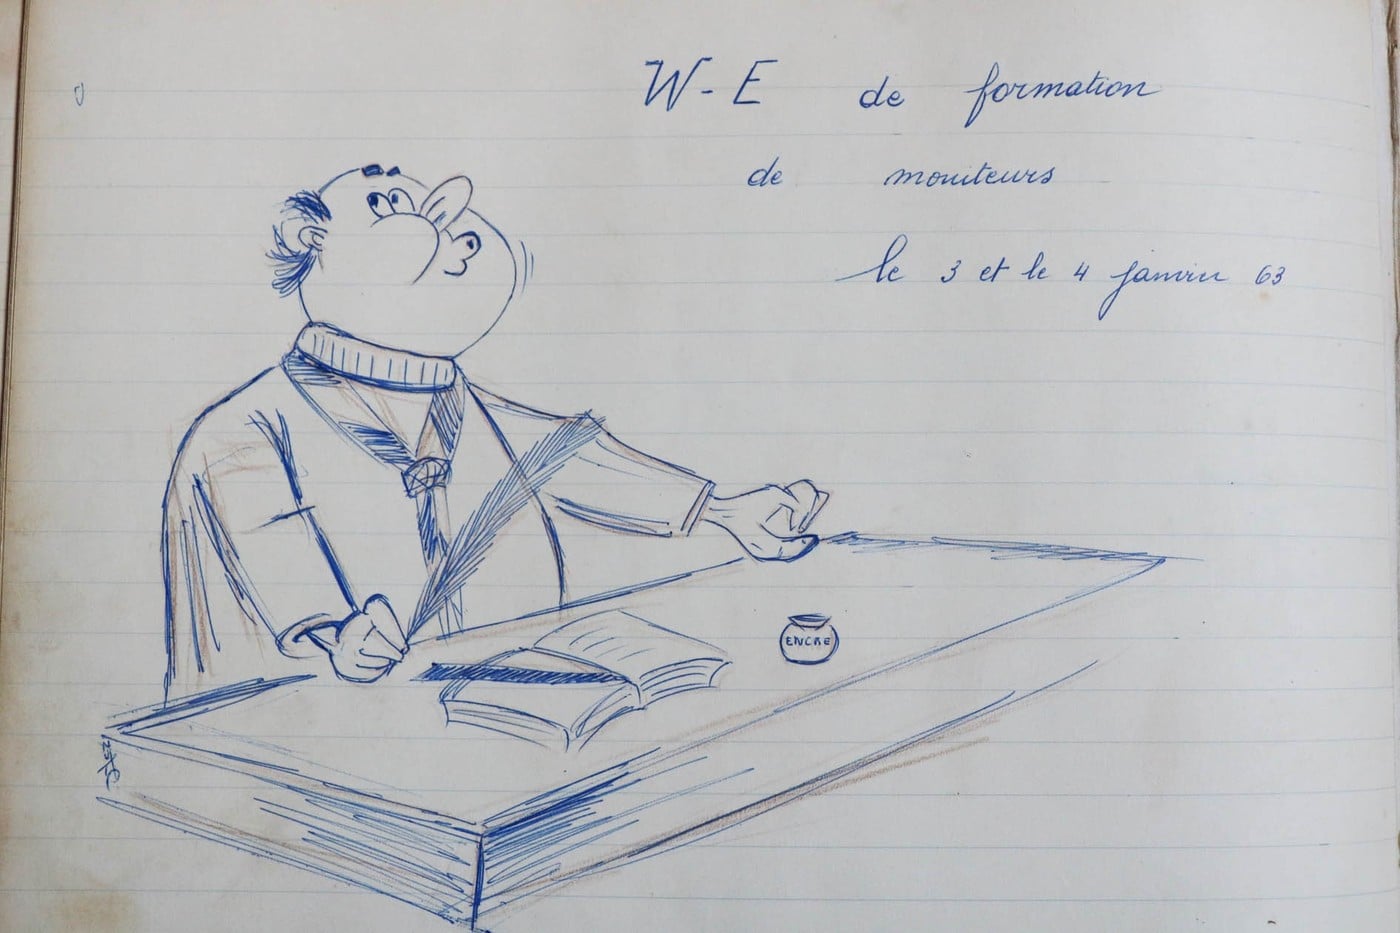 W-E de formation
de moniteurs
le 3 et le 4 janvier 63
ENCRE